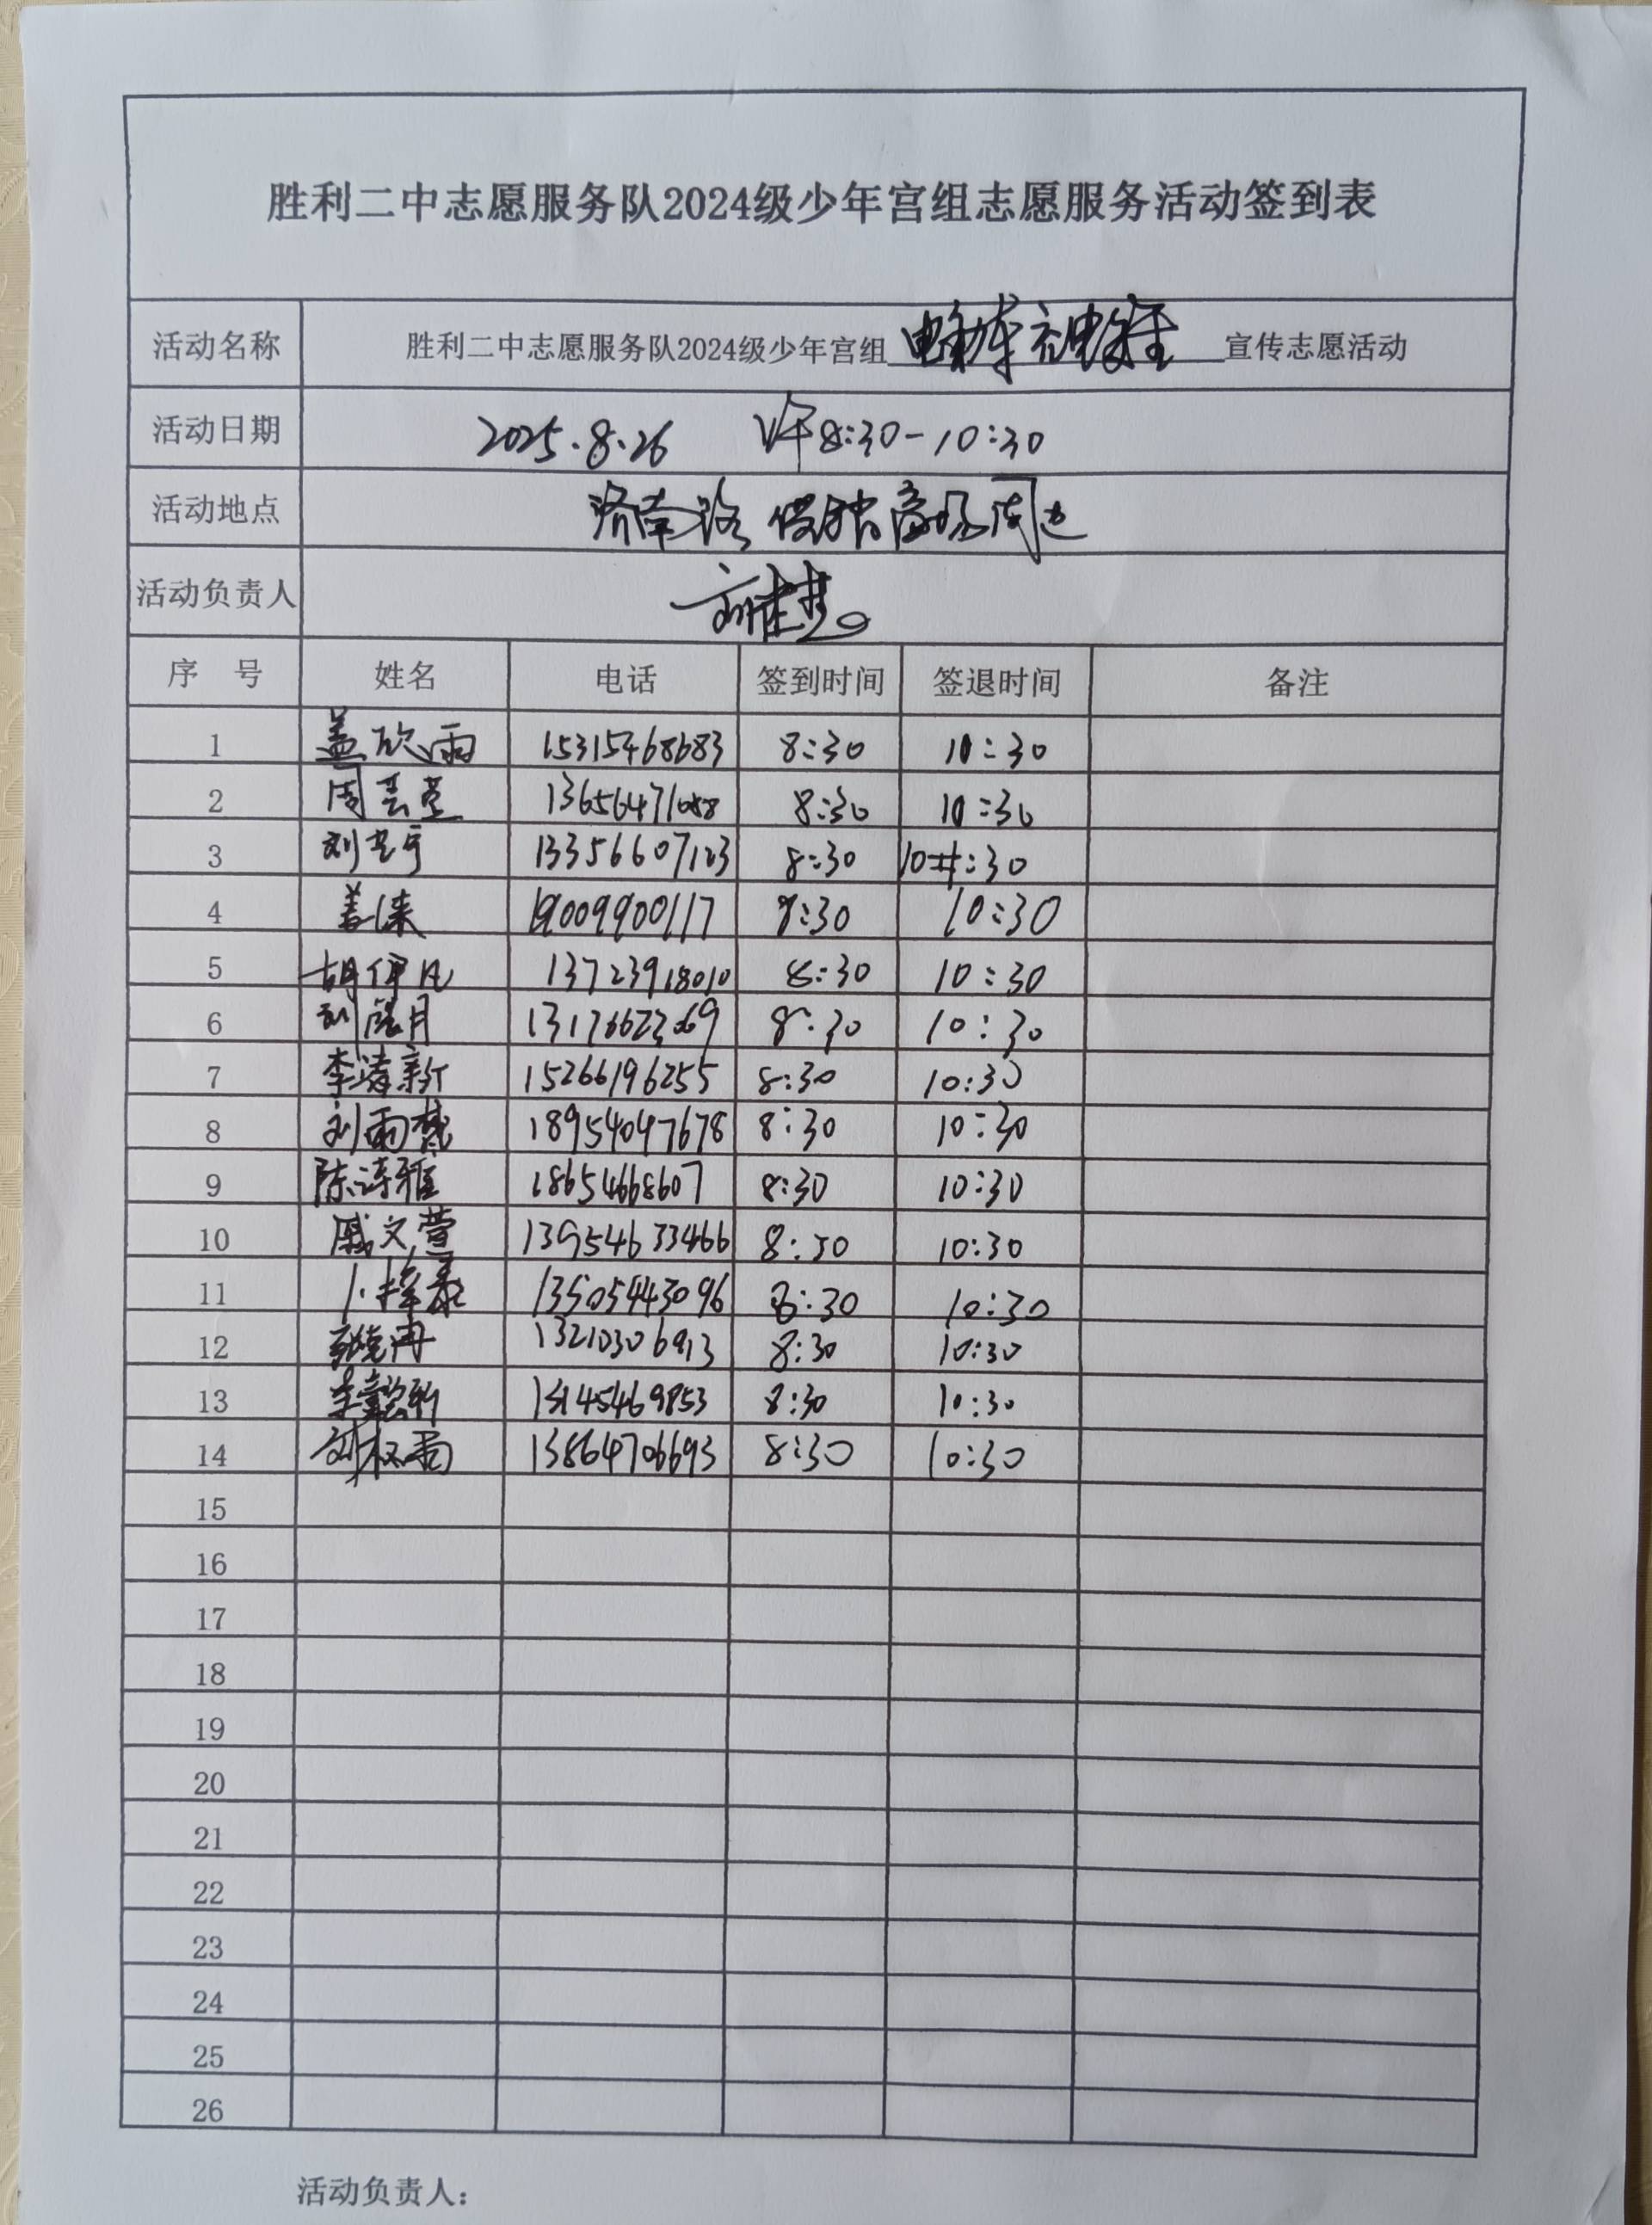 胜利二中志愿服务队2024级少年宫组志愿服务活动签到表
活动名称 胜利二中志愿服务队2024级少年宫组 电动车 宣传志愿活动
活动日期 2025.8.26 8:30-10:30
活动地点 济南路 商场周边
活动负责人
序 号 姓名 电话 签到时间 签退时间 备注
1 盖欣雨 15315468683 8:30 10:30
2 周芸萱 8:30 10:30
3 刘艺宁 13356607123 8:30 10:30
4 19009900117 8:30 10:30
5 胡伊凡 13723918010 8:30 10:30
6 8:30 10:30
7 李清新 15266196255 8:30 10:30
8 刘雨梵 18954047678 8:30 10:30
9 陈诗雅 18654668607 8:30 10:30
10 戚文萱 13954633466 8:30 10:30
11 13505443096 8:30 10:30
12 13210306913 8:30 10:30
13 8:30 10:30
14 13864706693 8:30 10:30
15
16
17
18
19
20
21
22
23
24
25
26
活动负责人：